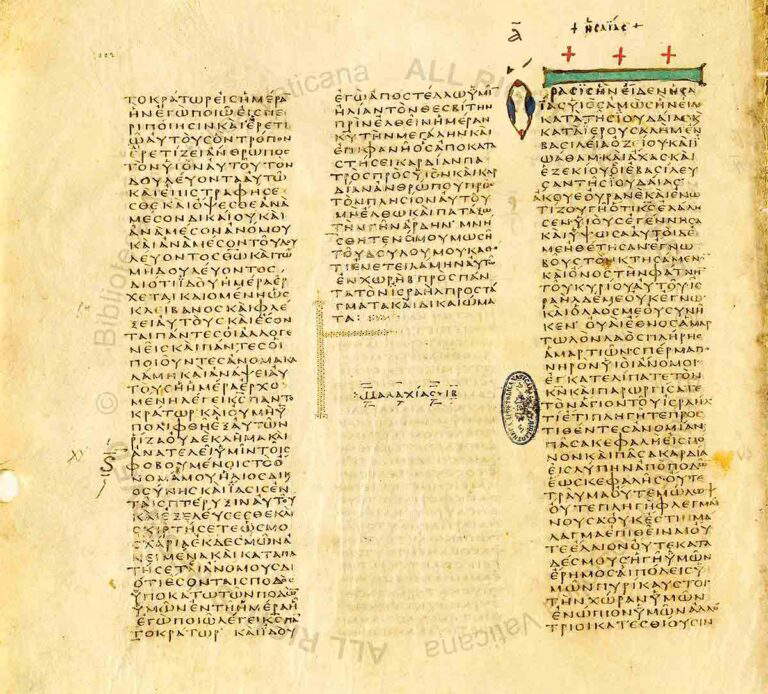 ᾱ + ΗΣΑΪΑΣ +
ΤΟΚΡΑΤΩΡΕΙΣΗΜΕΡΑ
ΗΝΕΓΩΠΟΙΩΕΙΣΠΕ
ΡΙΠΟΙΗΣΙΝΚΑΙΕΡΕΤΙ
ΩΑΥΤΟΥΣΟΝΤΡΟΠΟΝ
ΕΡΕΤΙΖΕΙΑΝΘΡΩΠΟΣ
ΤΟΝΥΙΟΝΑΥΤΟΥΤΟΝ
ΔΟΥΛΕΥΟΝΤΑΑΥΤΩ
ΚΑΙΕΠΙΣΤΡΑΦΗΣΕ
ΣΘΕΚΑΙΟΨΕΣΘΕΑΝΑ
ΜΕΣΟΝΔΙΚΑΙΟΥΚΑΙ
ΑΝΑΜΕΣΟΝΑΝΟΜΟΥ
ΚΑΙΑΝΑΜΕΣΟΝΤΟΥΔΟΥ
ΛΕΥΟΝΤΟΣΘΩΚΑΙΤΟΥ
ΜΗΔΟΥΛΕΥΟΝΤΟΣ
ΔΙΟΤΙΙΔΟΥΗΜΕΡΑΕΡ
ΧΕΤΑΙΚΑΙΟΜΕΝΗΩΣ
ΚΛΙΒΑΝΟΣΚΑΙΦΛΕ
ΞΕΙΑΥΤΟΥΣΚΑΙΕΣΟΝ
ΤΑΙΠΑΝΤΕΣΟΙΑΛΛΟΓΕ
ΝΕΙΣΚΑΙΠΑΝΤΕΣΟΙ
ΠΟΙΟΥΝΤΕΣΑΝΟΜΑΚΑ
ΛΑΜΗΚΑΙΑΝΑΨΕΙΑΥ
ΤΟΥΣΗΗΜΕΡΑΕΡΧΟ
ΜΕΝΗΛΕΓΕΙΚΣΠΑΝΤΟ
ΚΡΑΤΩΡΚΑΙΟΥΜΗΫ
ΠΟΛΙΦΘΗΕΞΑΥΤΩΝ
ΡΙΖΑΟΥΔΕΚΛΗΜΑΚΑΙ
ΑΝΑΤΕΛΕΙΫΜΙΝΤΟΙΣ
ΦΟΒΟΥΜΕΝΟΙΣΤΟΟ
ΝΟΜΑΜΟΥΗΛΙΟΣΔΙΚΑΙ
ΟΣΥΝΗΣΚΑΙΙΑΣΙΣΕΝ
ΤΑΙΣΠΤΕΡΥΞΙΝΑΥΤΟΥ
ΚΑΙΕΞΕΛΕΥΣΕΣΘΕΚΑΙ
ΣΚΙΡΤΗΣΕΤΕΩΣΜΟ
ΣΧΑΡΙΑΕΚΔΕΣΜΩΝΑ
ΝΕΙΜΕΝΑΚΑΙΚΑΤΑΠΑ
ΤΗΣΕΤΕΑΝΟΜΟΥΣΔΙ
ΟΤΙΕΣΟΝΤΑΙΣΠΟΔΟΣ
ΫΠΟΚΑΤΩΤΩΝΠΟΔΩΝ
ΫΜΩΝΕΝΤΗΗΜΕΡΑΗ
ΕΓΩΠΟΙΩΛΕΓΕΙΚΣΠΑ
ΤΟΚΡΑΤΩΡ ΚΑΙΪΔΟΥ
ΕΓΩΑΠΟΣΤΕΛΛΩΫΜΙ
ΗΛΙΑΝΤΟΝΘΕΣΒΙΤΗΝ
ΠΡΙΝΕΛΘΕΙΝΗΜΕΡΑΝ
ΚΥΤΗΝΜΕΓΑΛΗΝΚΑΙ
ΕΠΙΦΑΝΗΟΣΑΠΟΚΑΤΑ
ΣΤΗΣΕΙΚΑΡΔΙΑΝΠΑ
ΤΡΟΣΠΡΟΣΥΙΟΝΚΑΙΚΑΡ
ΔΙΑΝΑΝΘΡΩΠΟΥΠΡΟΣ
ΤΟΝΠΛΗΣΙΟΝΑΥΤΟΥ
ΜΗΕΛΘΩΚΑΙΠΑΤΑΞΩ
ΤΗΝΓΗΝΑΡΔΗΝ ΜΝΗ
ΣΘΗΤΕΝΟΜΟΥΜΩΣΗ
ΤΟΥΔΟΥΛΟΥΜΟΥΚΑΘΟ
ΤΙΕΝΕΤΕΙΛΑΜΗΝΑΥΤΩ
ΕΝΧΩΡΗΒΠΡΟΣΠΑΝ
ΤΑΤΟΝΙΣΡΑΗΛΠΡΟΣΤΑ
ΓΜΑΤΑΚΑΙΔΙΚΑΙΩΜΑ
ΤΑ:
ΜΑΛΑΧΙΑΣ ΙΒ
ΟΡΑΣΙΣΗΝΕΙΔΕΝΗΣΑ
ΪΑΣΥΙΟΣΑΜΩΣΗΝΕΙΔΕ
ΚΑΤΑΤΗΣΙΟΥΔΑΙΑΣΚΑΙ
ΚΑΤΑΪΕΡΟΥΣΑΛΗΜΕΝ
ΒΑΣΙΛΕΙΑΟΖΕΙΟΥΚΑΙΪ
ΩΑΘΑΜ·ΚΑΙΑΧΑΣ·ΚΑΙ
ΕΖΕΚΙΟΥΟΙΕΒΑΣΙΛΕΥ
ΣΑΝΤΗΣΙΟΥΔΑΙΑΣ
ΑΚΟΥΕΟΥΡΑΝΕΚΑΙΕΝΩ
ΤΙΖΟΥΓΗΟΤΙΚΣΕΛΑΛΗ
ΣΕΝΥΙΟΥΣΕΓΕΝΝΗΣΑ
ΚΑΙΫΨΩΣΑΑΥΤΟΙΔΕ
ΜΕΗΘΕΤΗΣΑΝΕΓΝΩ
ΒΟΥΣΤΟΝΚΤΗΣΑΜΕΝ
ΚΑΙΟΝΟΣΤΗΝΦΑΤΝΗ
ΤΟΥΚΥΡΙΟΥΑΥΤΟΥΙΣ
ΡΑΗΛΔΕΜΕΟΥΚΕΓΝΩ
ΚΑΙΟΛΑΟΣΜΕΟΥΣΥΝΗ
ΚΕΝ ΟΥΑΙΕΘΝΟΣΑΜΑΡ
ΤΩΛΟΝΛΑΟΣΠΛΗΡΗΣ
ΑΜΑΡΤΙΩΝΣΠΕΡΜΑΠΟ
ΝΗΡΟΝΥΙΟΙΑΝΟΜΟΙ
ΕΓΚΑΤΕΛΙΠΑΤΕΤΟΝ
ΚΝΚΑΙΠΑΡΩΡΓΙΣΑΤΕ
ΤΟΝΑΓΙΟΝΤΟΥΙΣΡΑΗΛ
ΤΙΕΤΙΠΛΗΓΗΤΕΠΡΟΣ
ΤΙΘΕΝΤΕΣΑΝΟΜΙΑΝ
ΠΑΣΑΚΕΦΑΛΗΕΙΣΠΟ
ΝΟΝΚΑΙΠΑΣΑΚΑΡΔΙΑ
ΕΙΣΛΥΠΗΝΑΠΟΠΟΔΩ
ΕΩΣΚΕΦΑΛΗΣΟΥΤΕ
ΤΡΑΥΜΑΟΥΤΕΜΩΛΩ
ΟΥΤΕΠΛΗΓΗΦΛΕΓΜΑΙ
ΝΟΥΣΑΟΥΚΕΣΤΙΝΜΑ
ΛΑΓΜΑΕΠΙΘΕΙΝΑΙΟΥ
ΤΕΕΛΑΙΟΝΟΥΤΕΚΑΤΑ
ΔΕΣΜΟΥΣΗΓΗΫΜΩΝ
ΕΡΗΜΟΣΑΙΠΟΛΕΙΣΫ
ΜΩΝΠΥΡΙΚΑΥΣΤΟΙ
ΤΗΝΧΩΡΑΝΫΜΩΝ
ΕΝΩΠΙΟΝΫΜΩΝΑΛΛΟ
ΤΡΙΟΙΚΑΤΕΣΘΙΟΥΣΙΝ